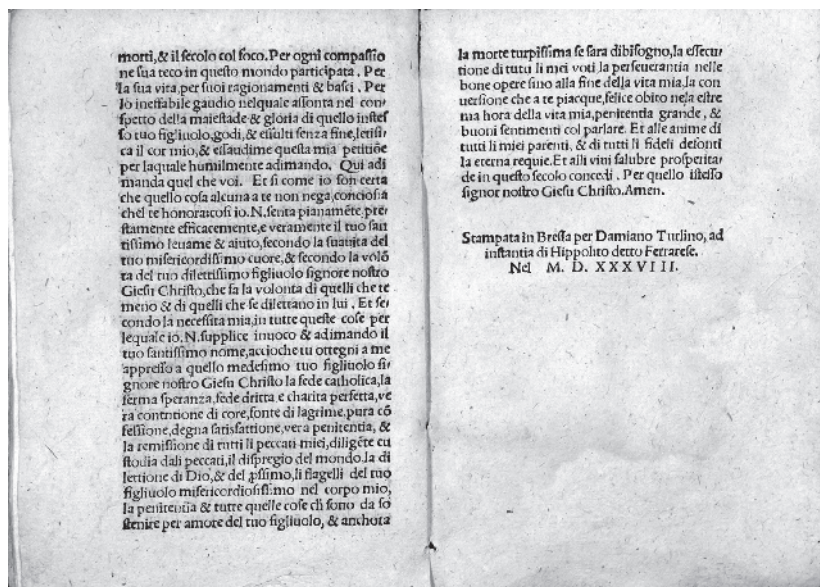 morti,& il secolo col foco. Per ogni compassio
ne sua teco in questo mondo participata. Per
la sua vita, per suoi ragionamenti & basci. Per
lo ineffabile gaudio nelquale assonta nel con/
spetto della maiestade & gloria di quello instes
so tuo figliuolo, godi, & essulti senza fine, letifi/
ca il cor mio, & essaudime questa mia petitiōe
per laquale humilmente adimando. Qui adi
manda quel che voi. Et si come io son certa
che quello cosa alcuna a te non nega, conciosia
chel te honora: cosi io. N. senta pianamēte, pre/
stamente efficacemente, e veramente il tuo san
tissimo leuame & aiuto, secondo la suauita del
tuo misericordissimo cuore, & secondo la volō
ta del tuo dilettissimo figliuolo signore nostro
Giesu Christo, che fa la volonta di quelli che te
meno & di quelli che se dilettano in lui. Et se/
condo la necessita mia, in tutte queste cose per
lequale io. N. supplice inuoco & adimando il
tuo santissimo nome, accioche tu ottegni a me
appresso a quello medesimo tuo figliuolo si/
gnore nostro Giesu Christo la fede catholica, la
ferma speranza, fede dritta, e charita perfetta, ve
ra contritione di core, fonte di lagrime, pura cō
fessione, degna satisfattione, vera penitentia, &
la remissione di tutti li peccati miei, diligēte cu
stodia dali peccati, il dispregio del mondo, la di
lettione di Dio, & del ꝓssimo, li flagelli del tuo
figliuolo misericordiosissimo nel corpo mio,
la penitentia & tutte quelle cose che sono da so
stenire per amore del tuo figliuolo, & anchora
la morte turpissima se sara dibisogno, la essecu/
tione di tutti li mei voti la perseuerantia nelle
bone opere sino alla fine della vita mia, la con
uersione che a te piacque, felice obito nela estre
ma hora della vita mia, penitentia grande, &
buoni sentimenti col parlare. Et alle anime di
tutti li miei parenti, & di tutti li fideli defonti
la eterna requie. Et alli viui salubre prosperita/
de in questo secolo concedi. Per quello istesso
signor nostro Giesu Christo. Amen.
Stampata in Bressa per Damiano Turlino, ad
instantia di Hippolito detto Ferrarese.
Nel M. D. XXXVIII.